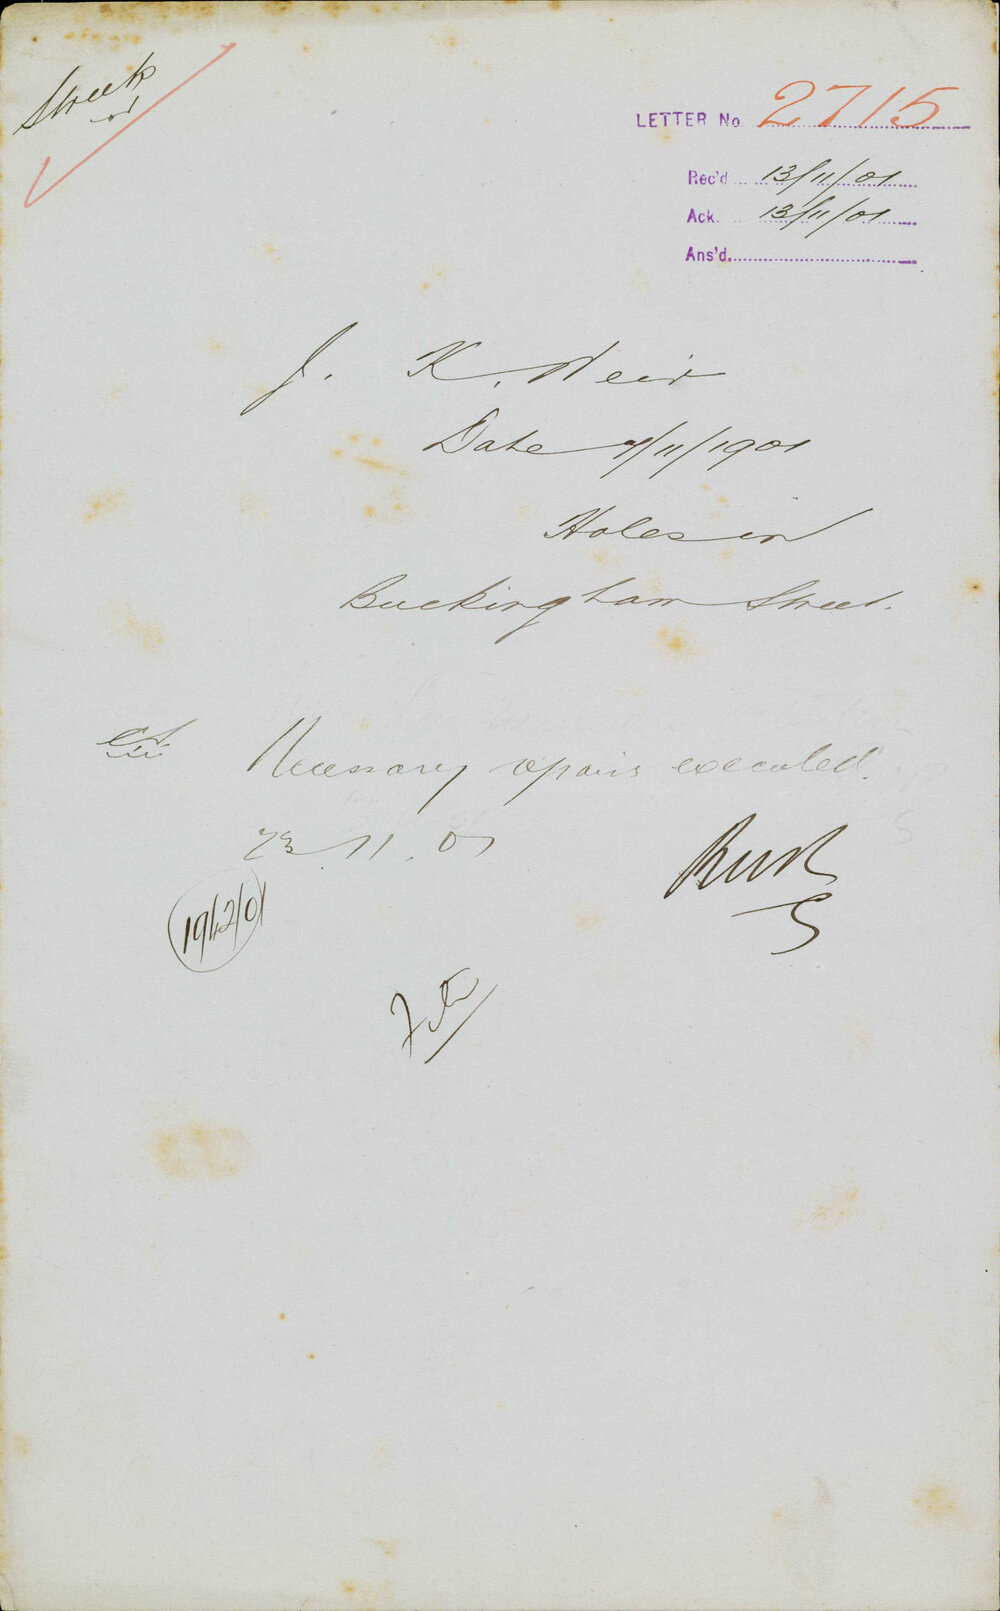 LETTER No 2715
Rec'd 13/11/01
Ack. 13/11/01
Ans'd.
J. K. Weir
Date 7/11/1901
Holes in
Buckingham Street.
Necessary repairs executed.
23.11.01
19/12/01